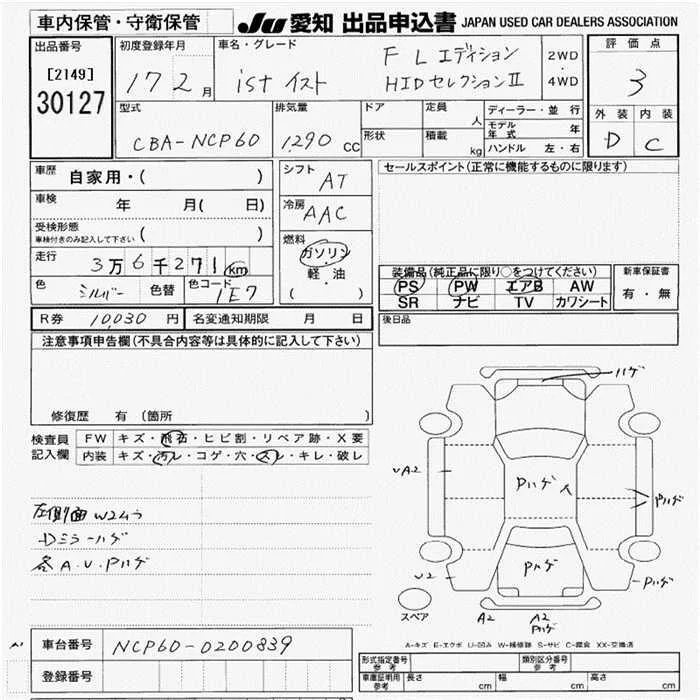 車内保管・守衛保管
JU 愛知 出品申込書 JAPAN USED CAR DEALERS ASSOCIATION
出品番号
[2149]
30127
初度登録年月
17 2 月
車名・グレード
ist イスト
F L エディション
HIDセレクションII
2WD
・
4WD
評価点
3
外装 内装
D C
型式
CBA-NCP60
排気量
1,290 cc
ドア
形状
定員
人
積載
kg
ディーラー・並行
モデル年式 年
ハンドル 左・右
車歴 自家用・( )
車検 年 月( 日)
受検形態
車検付きのみ記入して下さい ( )
走行 3万6千271 km
色 シルバー 色替 色コード 1E7
シフト AT
冷房 AAC
燃料
ガソリン
・
軽・油
( )
セールスポイント(正常に機能するものに限ります)
装備品(純正品に限り○をつけてください)
PS PW エアB AW
SR ナビ TV カワシート
新車保証書
有・無
R券 10,030 円 名変通知期限 月 日
後日品
注意事項申告欄(不具合内容等は具体的に記入して下さい)
修復歴 有 (箇所 )
検査員
記入欄
FW キズ・飛石・ヒビ割・リペア跡・X要
内装 キズ・汚レ・コゲ・穴・スレ・キレ・破レ
左側面 W2ムラ
Dミラーハゲ
各A.U.Pハゲ
ハゲ
UA2
Pハゲ
Pハゲ
Pハゲ
U2
Pハゲ
スペア
A2
A2
Pハゲ
A-キズ E-エクボ U-凹み W-補修跡 S-サビ C-腐食 XX-交換済
車台番号 NCP60-0200839
登録番号
形式指定番号
参考
類別区分番号
参考
車庫証明用
参考
長さ cm 幅 cm 高さ cm